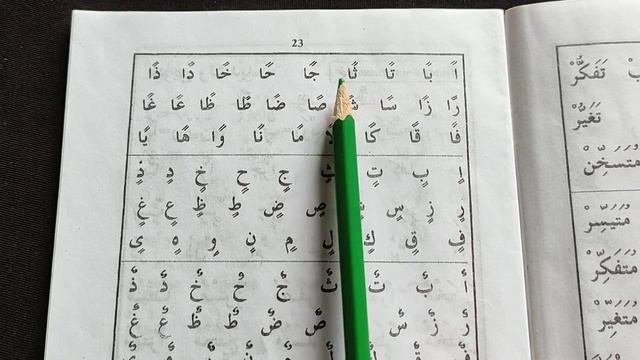 23
اً بًا تًا ثًا جًا حًا خًا دًا ذًا
رًا زًا سًا صًا ضًا طًا ظًا عًا غًا
فًا قًا كًا مًا نًا وًا هًا يًا
اٍ بٍ تٍ ثٍ جٍ حٍ خٍ دٍ ذٍ
رٍ زٍ سٍ صٍ ضٍ طٍ ظٍ عٍ غٍ
فٍ قٍ كٍ لٍ مٍ نٍ وٍ هٍ يٍ
اٌ بٌ تٌ ثٌ جٌ حٌ خٌ دٌ ذٌ
رٌ زٌ سٌ صٌ ضٌ طٌ ظٌ عٌ غٌ
تَفَكُّرْ
تَغَيُّرْ
مُتَسَخِّنْ
مُتَيَسِّرْ
مُتَفَكِّرْ
مُتَغَيِّرْ